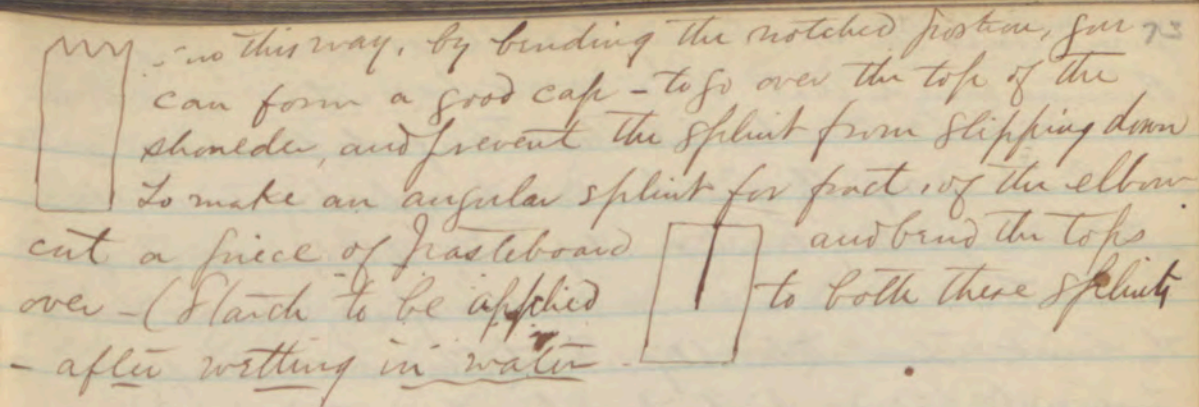 - in this way, by bending the notched portion, you 73
can form a good cap - to go over the top of the
shoulder, and prevent the splint from slipping down
To make an angular splint for fract. of the elbow
cut a piece of pasteboard and bend the tops
over - (Starch to be applied to both these splints
- after wetting in water -